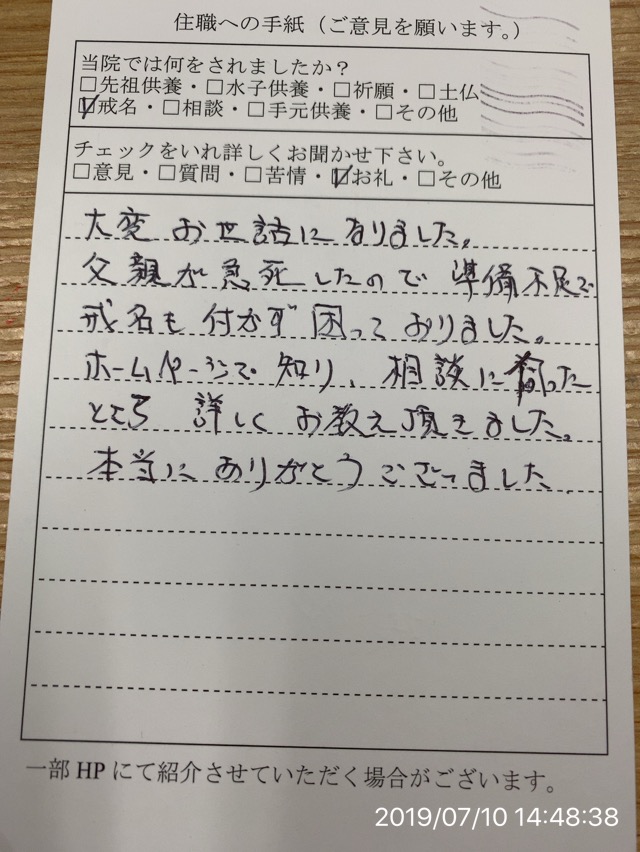 住職への手紙（ご意見を願います。）
当院では何をされましたか？
□先祖供養・□水子供養・□祈願・□土仏
☑戒名・□相談・□手元供養・□その他
チェックをいれ詳しくお聞かせ下さい。
□意見・□質問・□苦情・☑お礼・□その他
大変お世話になりました。
父親が急死したので準備不足で
戒名も付かず困っておりました。
ホームページで知り、相談に伺った
ところ詳しくお教え頂きました。
本当にありがとうございました
一部HPにて紹介させていただく場合がございます。
2019/07/10 14:48:38